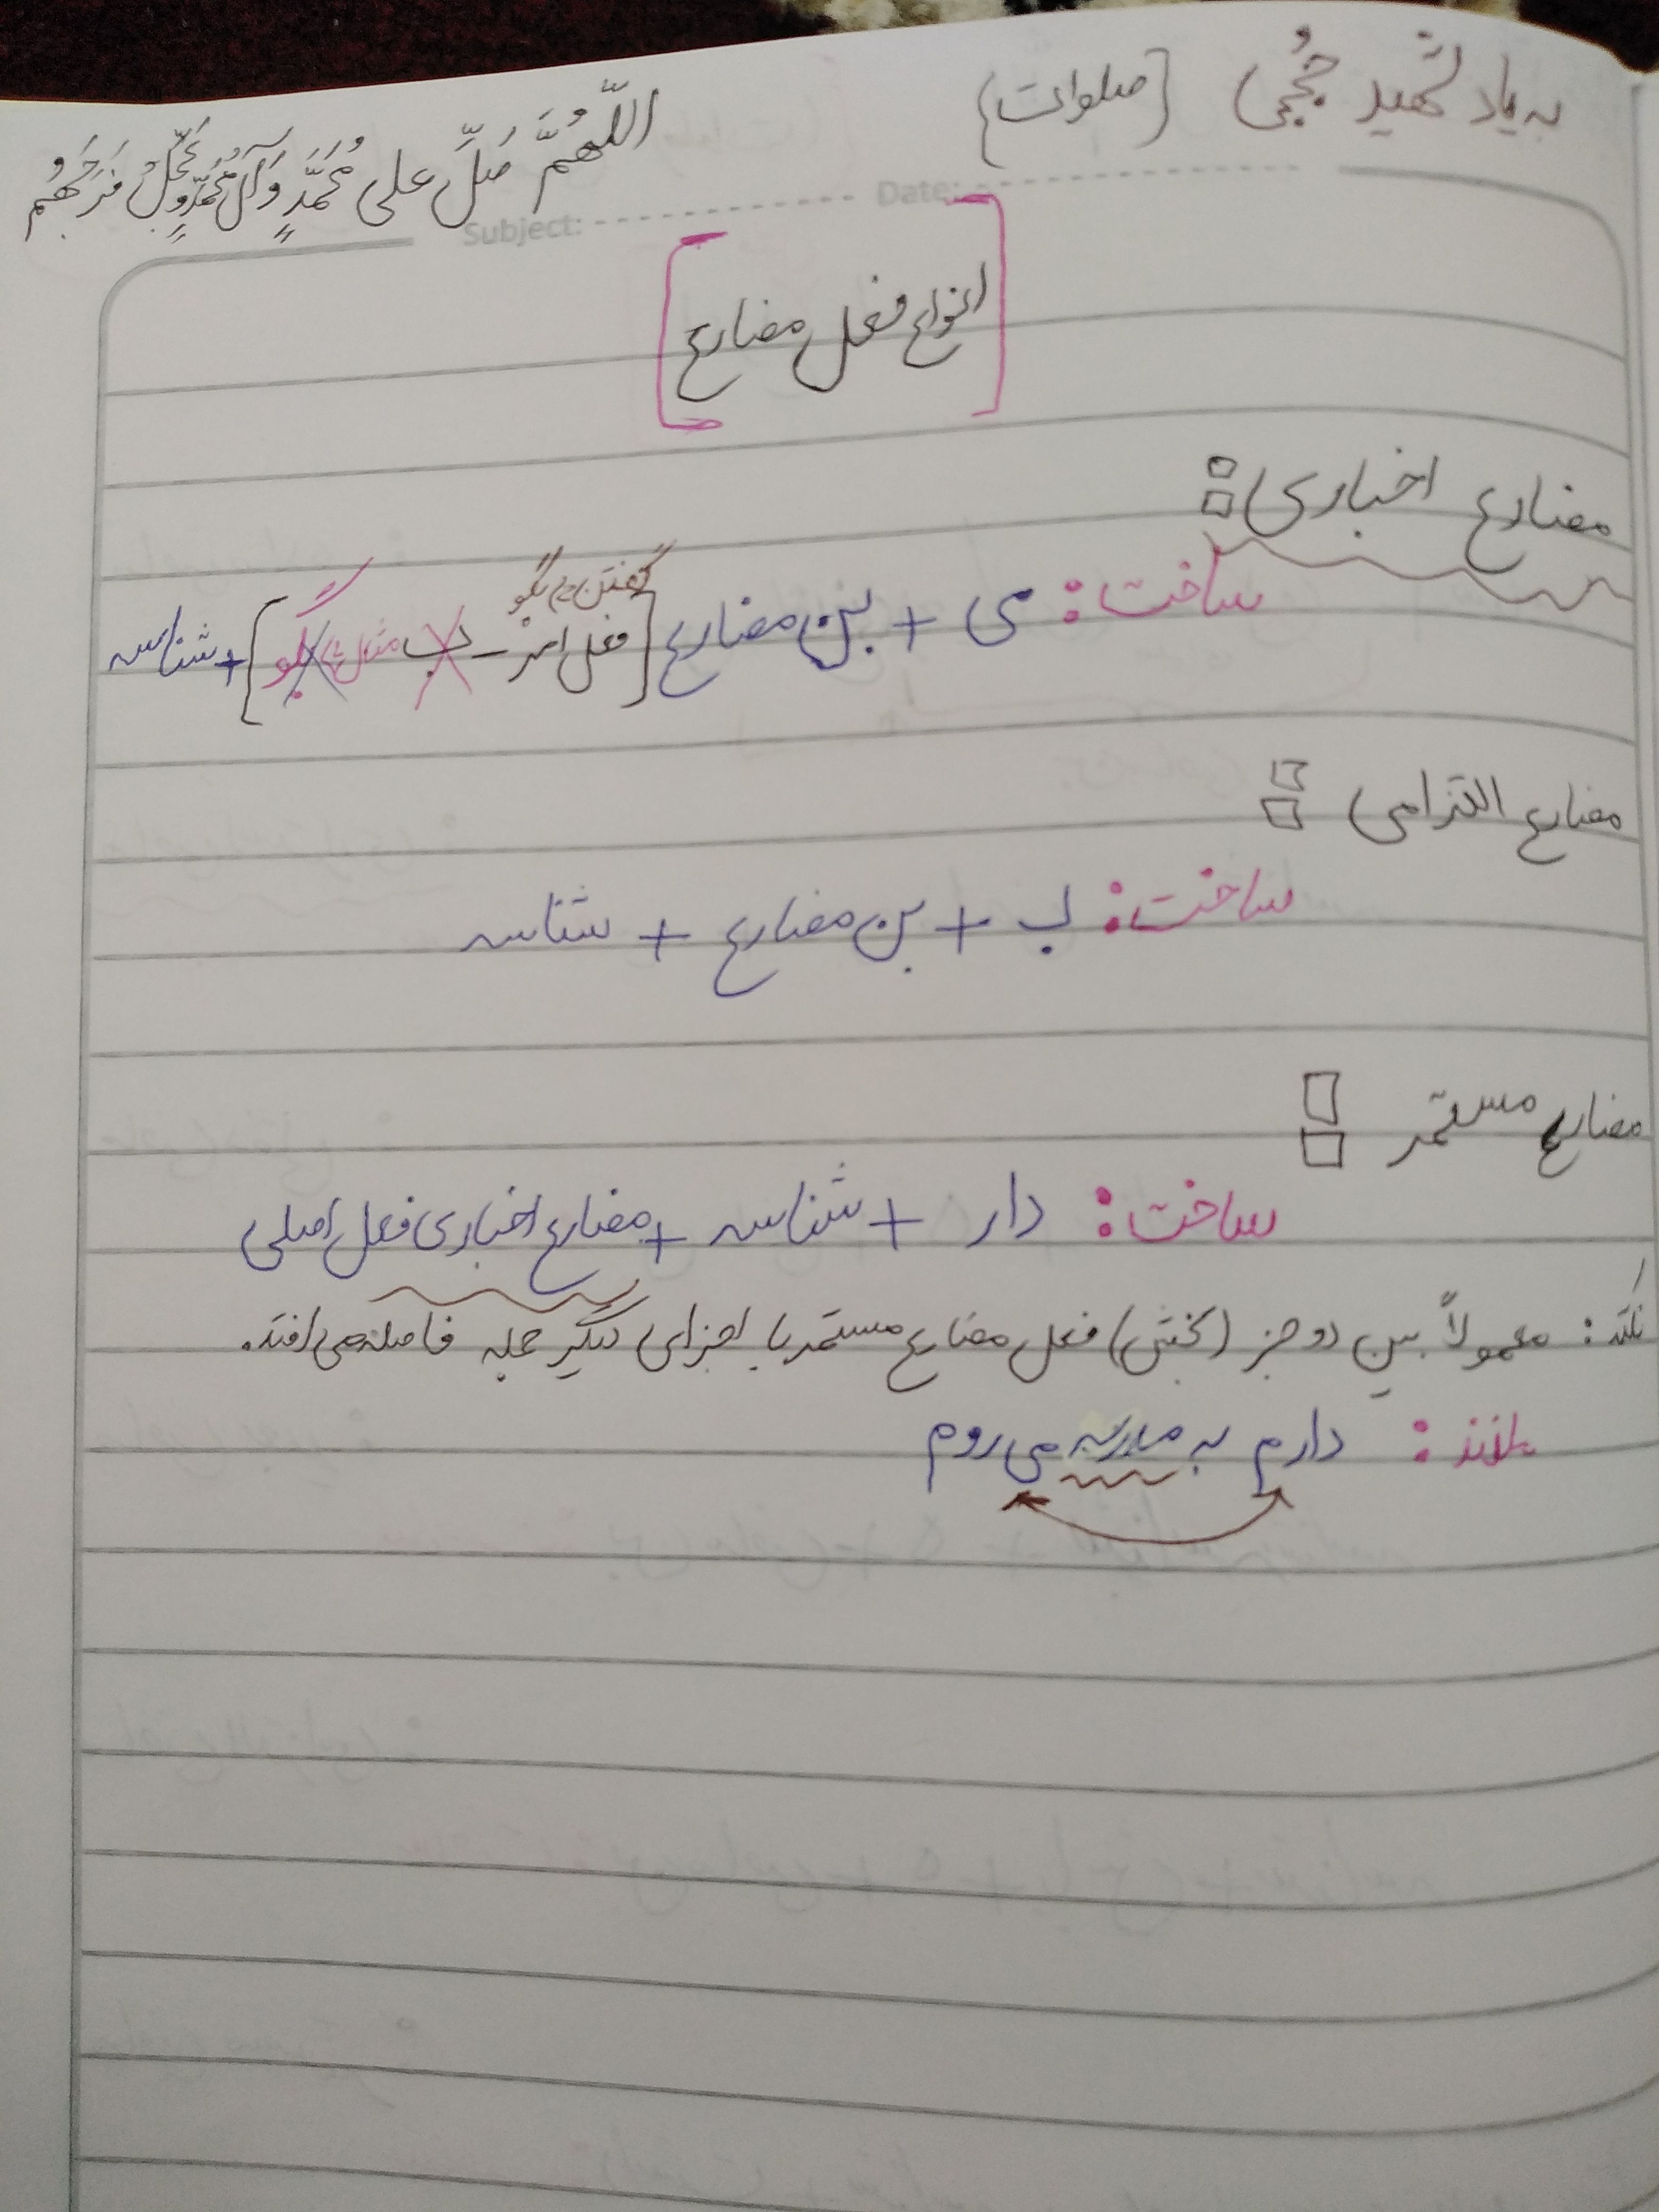 به یاد شهید حُججی (صلوات)
اللّهُمَّ صَلِّ علی مُحَمَّدٍ وَآلِ مُحَمَّدٍ وَعَجِّلْ فَرَجَهُم
Subject: Date:
[انواع فعل مضارع]
مضارع اخباری:
گفتن ⇐ بگو
ساخت: می + بن مضارع [فعل امر - ب مثل بگو] + شناسه
مضارع التزامی:
ساخت: ب + بن مضارع + شناسه
مضارع مستمر:
ساخت: دار + شناسه + مضارع اخباری فعل اصلی
نکته: معمولاً بین دو جز (بخش) فعل مضارع مستمر با اجزای دیگر جمله فاصله می افتد.
مانند: دارم به مدرسه می روم